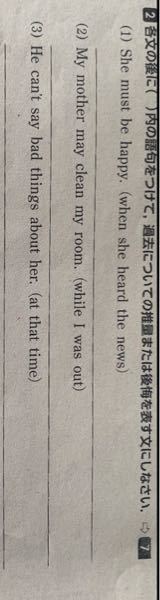 2 各文の後に( )内の語句をつけて，過去についての推量または後悔を表す文にしなさい． ⇨ 7
(1) She must be happy. (when she heard the news)
(2) My mother may clean my room. (while I was out)
(3) He can't say bad things about her. (at that time)